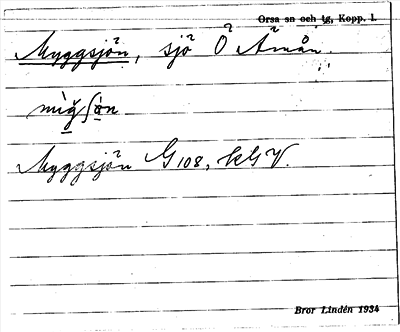 Orsa sn och tg, Kopp. l.
Myggsjön, sjö Ö Åmån.
Myggsjön G 108, kG V.
Bror Lindén 1934